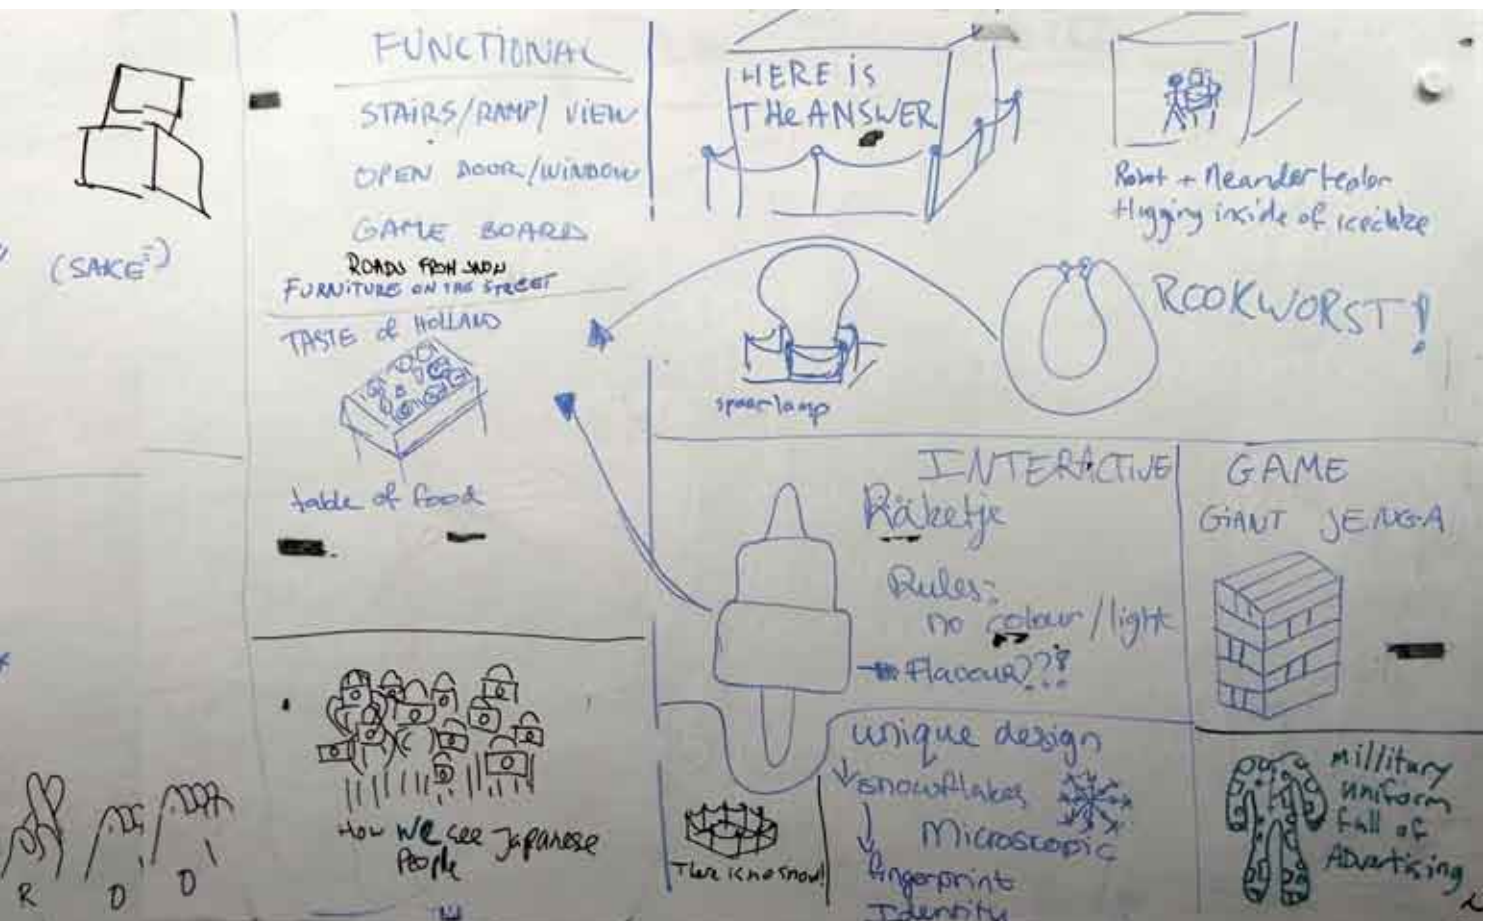 (SAKE)
R O O
FUNCTIONAL
STAIRS/RAMP/ VIEW
OPEN DOOR/WINDOW
GAME BOARD
ROADS FROM SNOW
FURNITURE ON THE STREET
TASTE of HOLLAND
table of food
How we see Japanese
People
HERE iS
THe ANSWER
Robot + Neandertealer
Higging inside of icecube
spaarlamp
ROOKWORST!
INTERACTIVE
Raketje
Rules:
no colour/light
Flavour???
GAME
GIANT JENGA
unique design
snowflakes
Microscopic
fingerprint
Identity
There is no snow!
Millitary
uniform
full of
Advertising